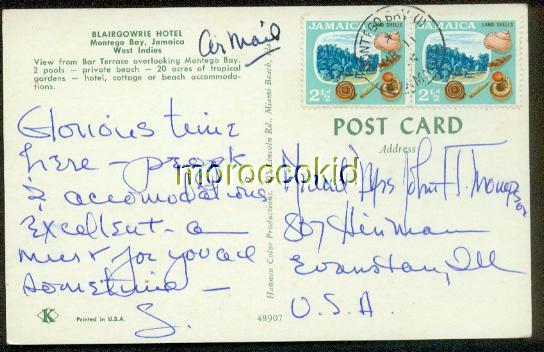 BLAIRGOWRIE HOTEL
Montego Bay, Jamaica
West Indies
View from Bar Terrace overlooking Montego Bay,
2 pools — private beach — 20 acres of tropical
gardens — hotel, cottage or beach accommoda-
tions.
Air Mail
Glorious time
here - people
& accomodations
Excellent - a
must for you all
sometime -
S.
Printed in U.S.A.
K
48907
Hannau Color Productions, Lincoln Rd., Miami Beach,
JAMAICA
LAND SHELLS
2½
JAMAICA
LAND SHELLS
2½
MONTEGO BAY
JAMAICA
POST CARD
Address
Mr and Mrs John T.
807 Hinman
Evanston, Ill
U.S.A.
moroccokid